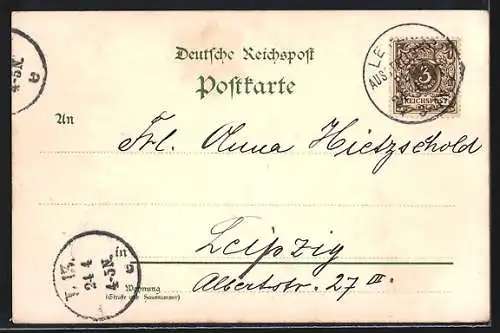 Deutsche Reichspost
Postkarte
LE
AUSSTELL
3
REICHSPOST
4-5N.
a
An
Frl. Anna Hietzschold
in
Leipzig
Albertstr. 27 III.
L. 13.
24 4
4-5N.
a
Wohnung
(Straße und Hausnummer)